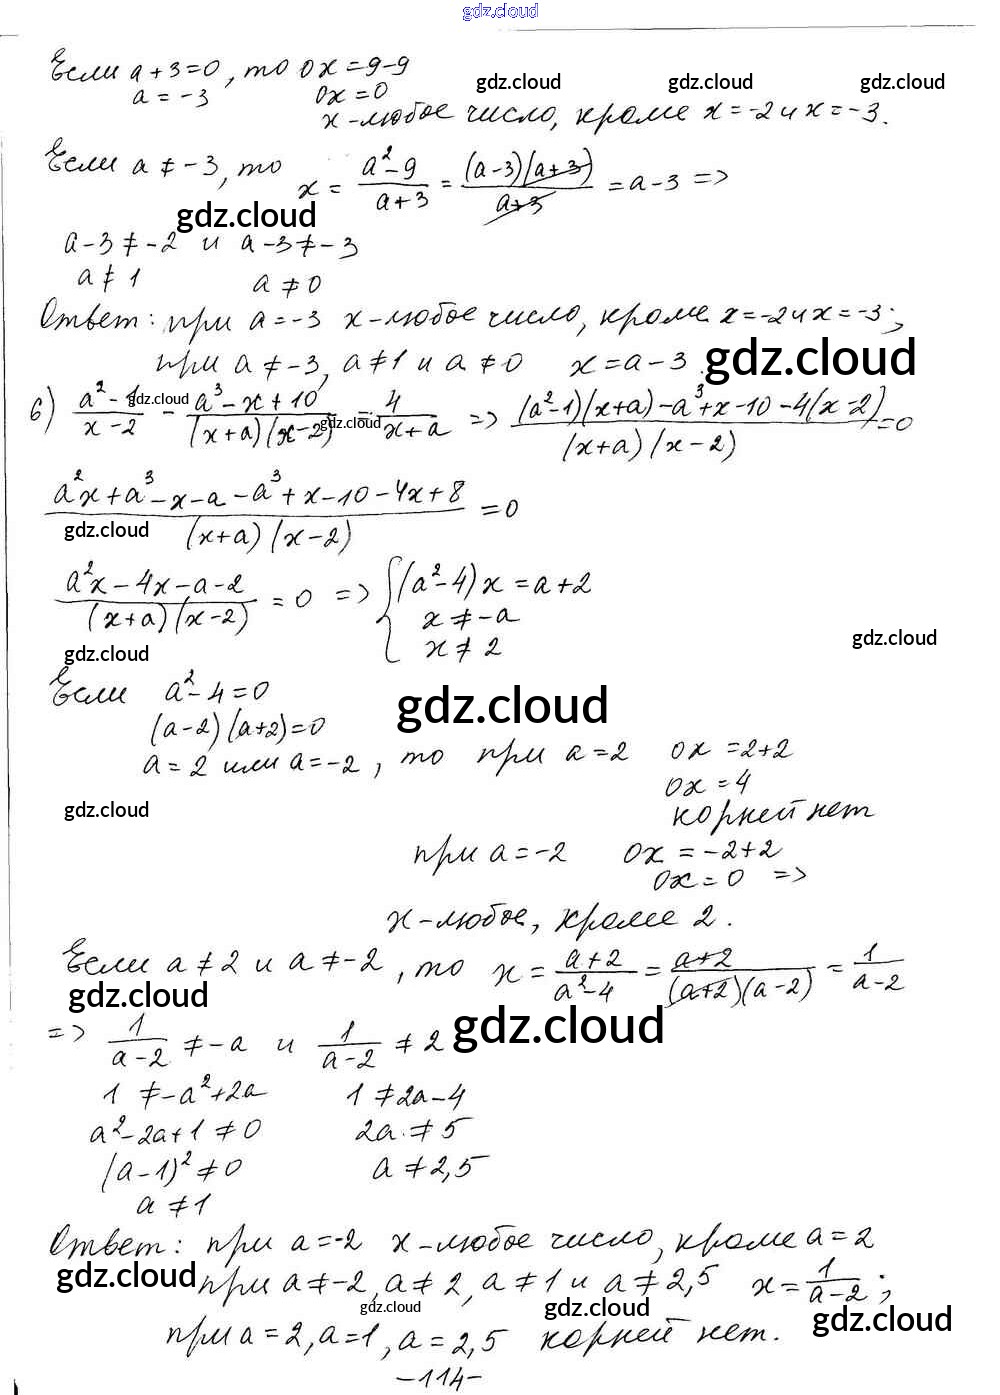 gdz.cloud
Если a+3=0, то 0x=9-9
a=-3 0x=0
gdz.cloud gdz.cloud gdz.cloud
x-любое число, кроме x=-2 и x=-3.
Если a≠-3, то x = (a²-9)/(a+3) = ((a-3)(a+3))/(a+3) = a-3 =>
gdz.cloud
a-3≠-2 и a-3≠-3
a≠1 a≠0
Ответ: при a=-3 x-любое число, кроме x=-2 и x=-3;
при a≠-3, a≠1 и a≠0 x=a-3.
gdz.cloud
б) (a²-1)/(x-2) - (a³-x+10)/((x+a)(x-2)) = 4/(x+a) => ((a²-1)(x+a)-a³+x-10-4(x-2))/((x+a)(x-2))=0
gdz.cloud gdz.cloud
(a²x+a³-x-a-a³+x-10-4x+8)/((x+a)(x-2)) = 0
gdz.cloud
(a²x-4x-a-2)/((x+a)(x-2)) = 0 => { (a²-4)x=a+2
x≠-a
x≠2
gdz.cloud gdz.cloud
Если a²-4=0
gdz.cloud
(a-2)(a+2)=0
a=2 или a=-2, то при a=2 0x=2+2
0x=4
gdz.cloud
корней нет
при a=-2 0x=-2+2
0x=0 =>
x-любое, кроме 2.
Если a≠2 и a≠-2, то x = (a+2)/(a²-4) = (a+2)/((a+2)(a-2)) = 1/(a-2)
gdz.cloud gdz.cloud
=> 1/(a-2) ≠ -a и 1/(a-2) ≠ 2
1≠-a²+2a 1≠2a-4
a²-2a+1≠0 2a≠5
(a-1)²≠0 a≠2,5
a≠1
Ответ: при a=-2 x-любое число, кроме a=2
gdz.cloud
при a≠-2, a≠2, a≠1 и a≠2,5 x=1/(a-2);
gdz.cloud gdz.cloud gdz.cloud
при a=2, a=1, a=2,5 корней нет.
-114-